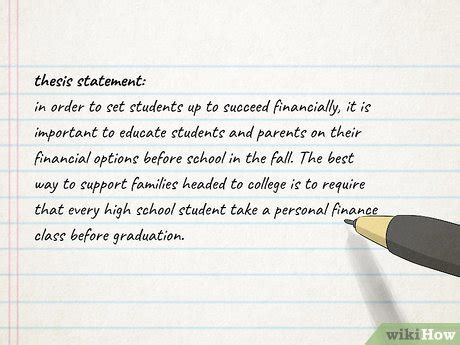 thesis statement:
in order to set students up to succeed financially, it is
important to educate students and parents on their
financial options before school in the fall. The best
way to support families headed to college is to require
that every high school student take a personal finance
class before graduation.
wikiHow